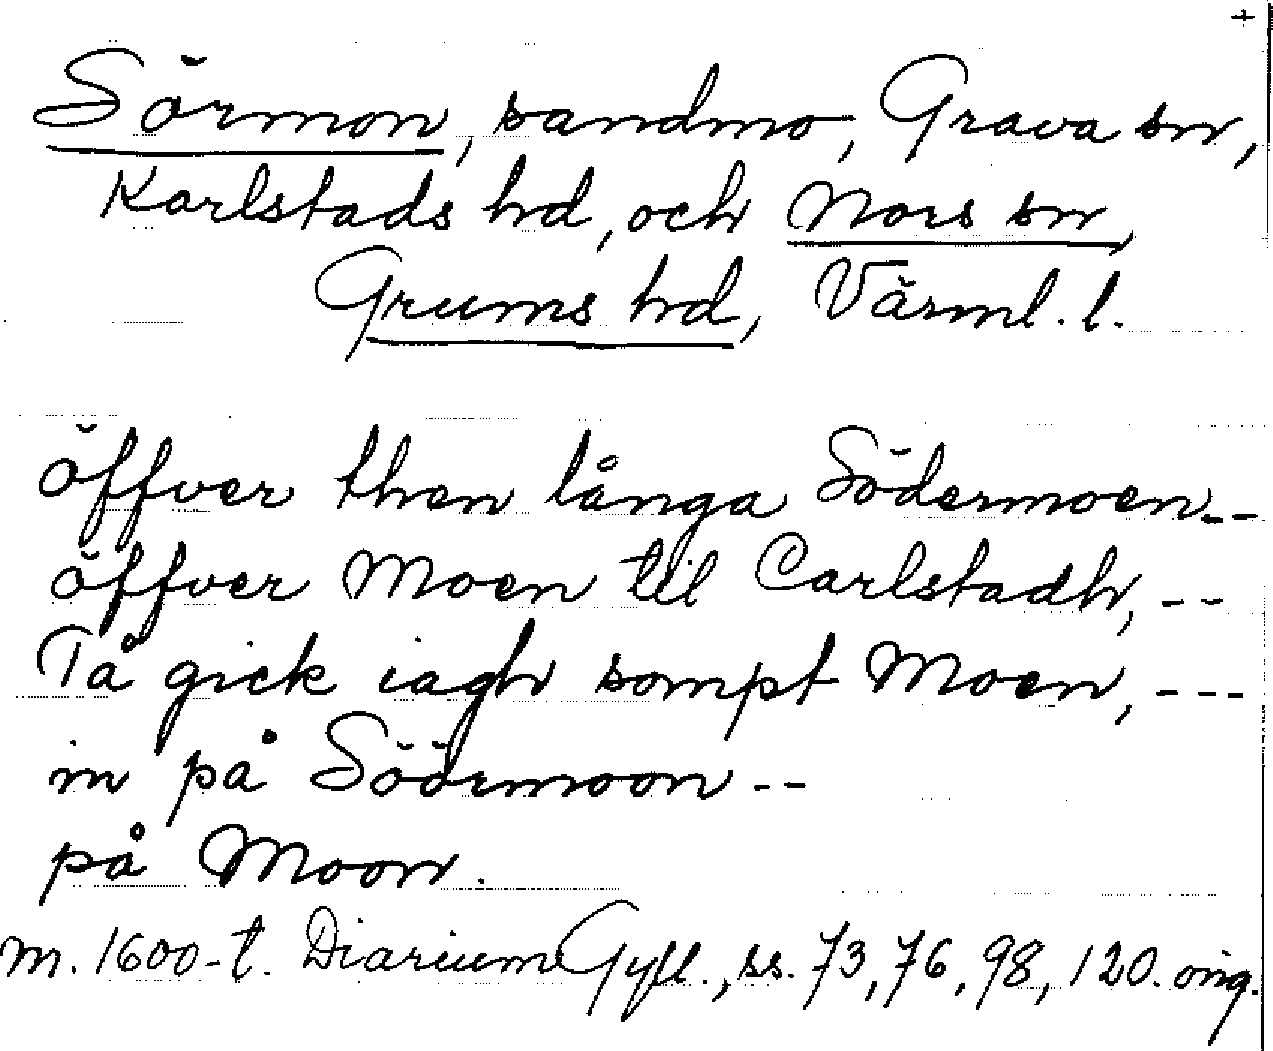 +
Sörmon, sandmo, Grava sn,
Karlstads hd, och Nors sn,
Grums hd, Värml. l.
öffver then långa Södermoen--
öffver Moen til Carlstadh, --
Tå gick iagh sompt Moen, ---
in på Södermoon --
på Moon.
m. 1600-t. Diarium Gyll., ss. 73, 76, 98, 120. orig.